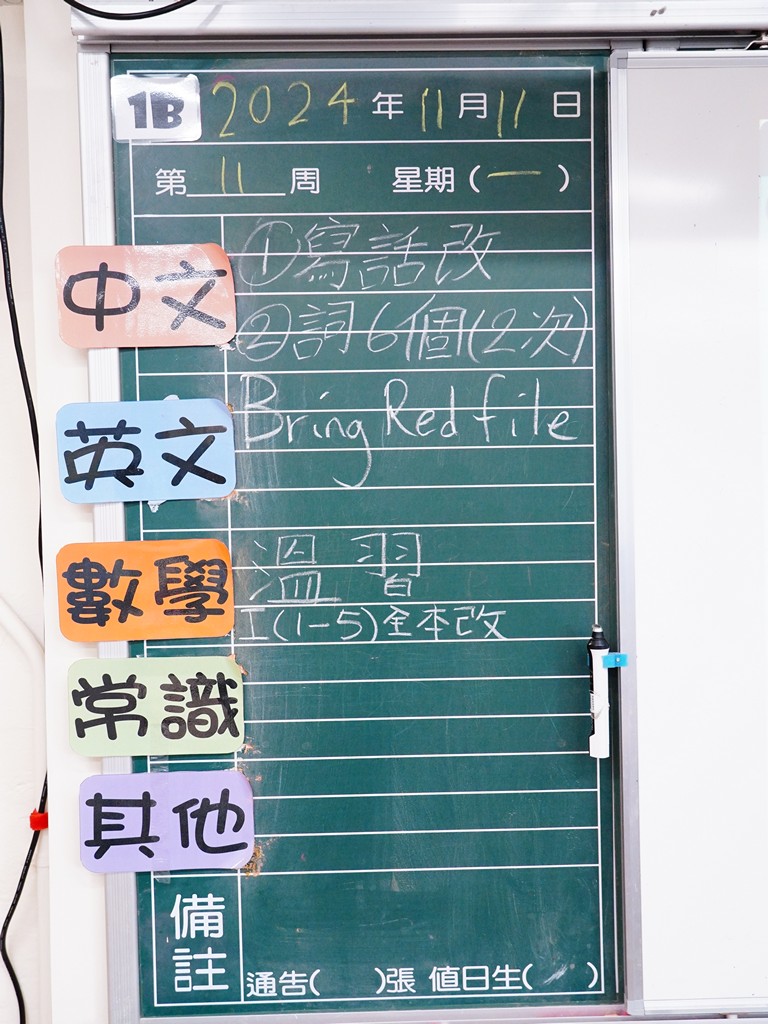 1B 2024年11月11日
第11周 星期(一)
中文 ①寫話改
②詞6個(2次)
英文 Bring Red file
數學 溫習
工(1-5)全本改
常識
其他
備註 通告( )張 值日生( )